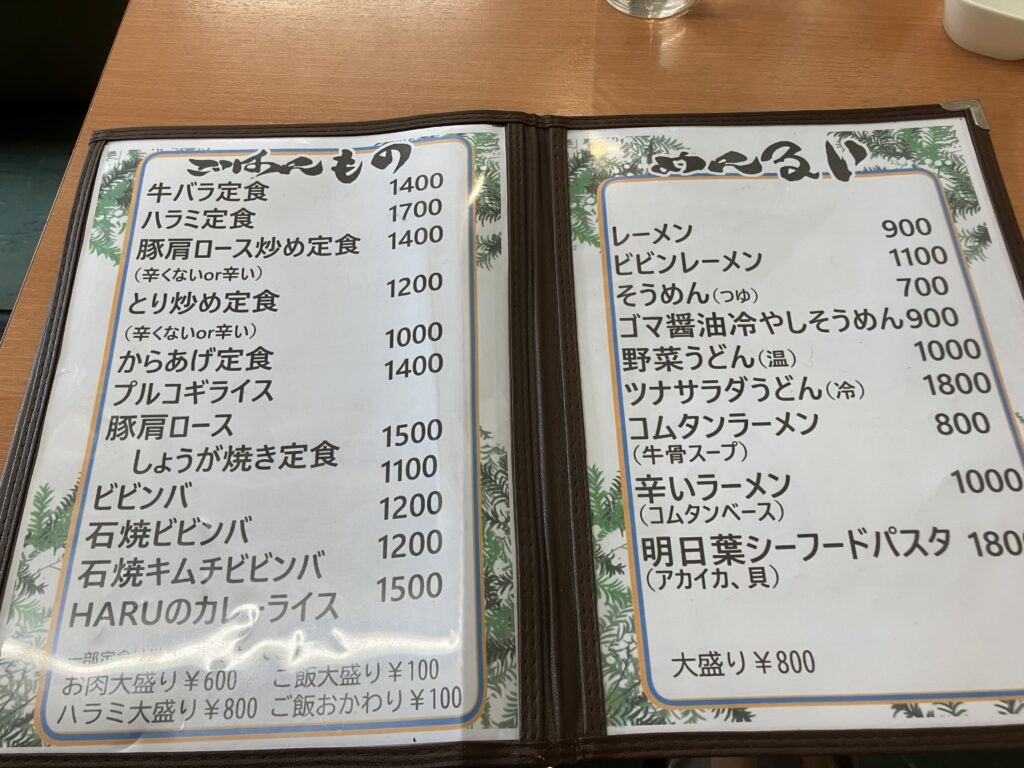 ごはんもの
牛バラ定食 1400
ハラミ定食 1700
豚肩ロース炒め定食 1400
(辛くないor辛い)
とり炒め定食 1200
(辛くないor辛い)
からあげ定食 1000
プルコギライス 1400
豚肩ロース
しょうが焼き定食 1500
ビビンバ 1100
石焼ビビンバ 1200
石焼キムチビビンバ 1200
HARUのカレーライス 1500
一部定食
お肉大盛り¥600 ご飯大盛り¥100
ハラミ大盛り¥800 ご飯おかわり¥100
めんるい
レーメン 900
ビビンレーメン 1100
そうめん(つゆ) 700
ゴマ醤油冷やしそうめん900
野菜うどん(温) 1000
ツナサラダうどん(冷) 1800
コムタンラーメン 800
(牛骨スープ)
辛いラーメン 1000
(コムタンベース)
明日葉シーフードパスタ 1800
(アカイカ、貝)
大盛り¥800